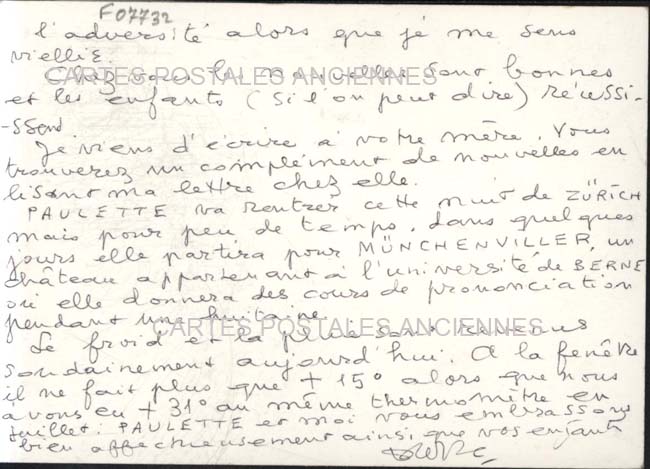 F07732
l'adversité alors que je me sens
vieillie.
Chez vous les nouvelles sont bonnes
CARTES POSTALES ANCIENNES
et les enfants (si l'on peut dire) réussi-
-ssent
Je viens d'écrire à votre mère. Vous
trouverez un complément de nouvelles en
lisant ma lettre chez elle.
PAULETTE va rentrer cette nuit de ZÜRICH
mais pour peu de temps. Dans quelques
jours elle partira pour MÜNCHENVILLER, un
château appartenant à l'université de BERNE
où elle donnera des cours de prononciation
pendant une huitaine.
CARTES POSTALES ANCIENNES
Le froid et la pluie sont revenus
soudainement aujourd'hui. A la fenêtre
il ne fait plus que + 15° alors que nous
avons eu + 31° au même thermomètre en
juillet. PAULETTE et moi vous embrassons
bien affectueusement ainsi que vos enfants